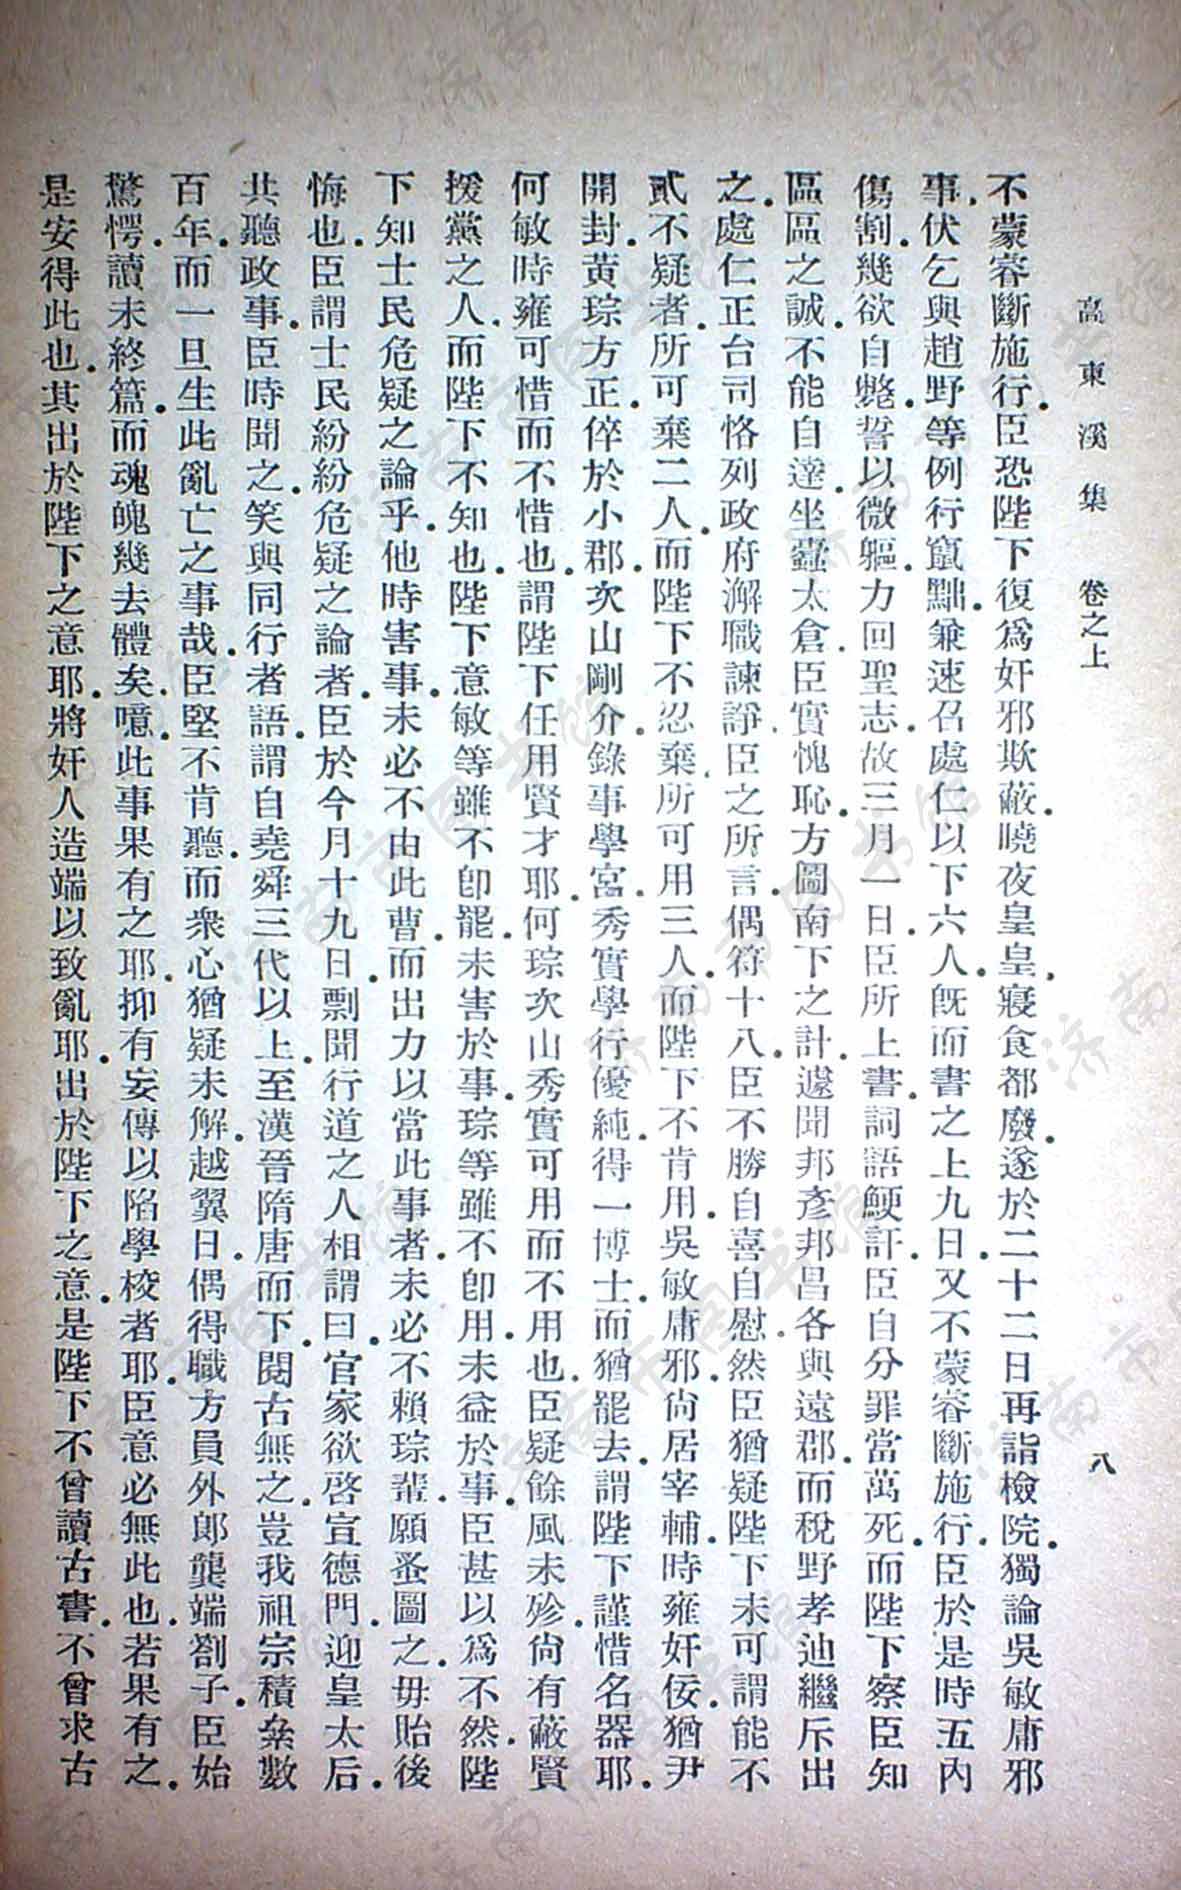 高東溪集　卷之上　八
不蒙睿斷施行.臣恐陛下復爲奸邪欺蔽.曉夜皇皇.寢食都廢.遂於二十二日再詣檢院.獨論吳敏庸邪
事.伏乞與趙野等例行竄黜.兼速召處仁以下六人.旣而書之上九日.又不蒙睿斷施行.臣於是時五內
傷割.幾欲自斃.誓以微軀.力回聖志.故三月一日.臣所上書.詞語鯁訐.臣自分罪當萬死.而陛下察臣知
區區之誠.不能自達.坐蠹太倉.臣實愧恥.方圖南下之計.遽聞邦彥邦昌各與遠郡.而稅野孝迪繼斥出
之.處仁正台司.恪列政府.澥職諫諍.臣之所言.偶符十八.臣不勝自喜自慰.然臣猶疑陛下未可謂能不
貳不疑者.所可棄二人.而陛下不忍棄.所可用三人.而陛下不肯用.吳敏庸邪.尙居宰輔.時雍奸佞.猶尹
開封.黃琮方正.倅於小郡.次山剛介.錄事學宮.秀實學行優純.得一博士.而猶罷去.謂陛下謹惜名器耶.
何敏時雍可惜而不惜也.謂陛下任用賢才耶.何琮次山秀實可用而不用也.臣疑餘風未殄.尙有蔽賢
援黨之人.而陛下不知也.陛下意敏等雖不卽罷.未害於事.琮等雖不卽用.未益於事.臣甚以爲不然.陛
下知士民危疑之論乎.他時害事.未必不由此曹.而出力以當此事者.未必不賴琮輩.願蚤圖之.毋貽後
悔也.臣謂士民紛紛危疑之論者.臣於今月十九日.剽聞行道之人相謂曰.官家欲啓宣德門.迎皇太后.
共聽政事.臣時聞之.笑與同行者語.謂自堯舜三代以上.至漢晉隋唐而下.閱古無之.豈我祖宗積絫數
百年.而一旦生此亂亡之事哉.臣堅不肯聽.而衆心猶疑未解.越翼日.偶得職方員外郞龔端劄子.臣始
驚愕.讀未終篇.而魂魄幾去體矣.噫.此事果有之耶.抑有妄傳以陷學校者耶.臣意必無此也.若果有之.
是安得此也.其出於陛下之意耶.將奸人造端以致亂耶.出於陛下之意.是陛下不曾讀古書.不曾求古